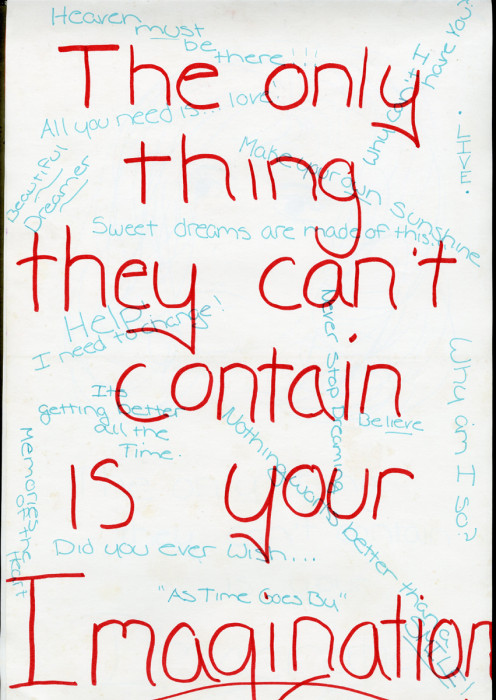 Heaven must be there!!!
Why can't I have You?
The only
All you need is... love!
· LIVE ·
Beautiful Dreamer
thing
Make your own Sunshine
Sweet dreams are made of this...
they can't
Help!
I need to change!
Never Stop Dreaming
contain
Why am I so?
Its
getting better
all the
Time.
Believe
Memories of the Heart
is your
Nothing works better than a SMILE!
Did you ever wish...
"As Time Goes By"
Imagination